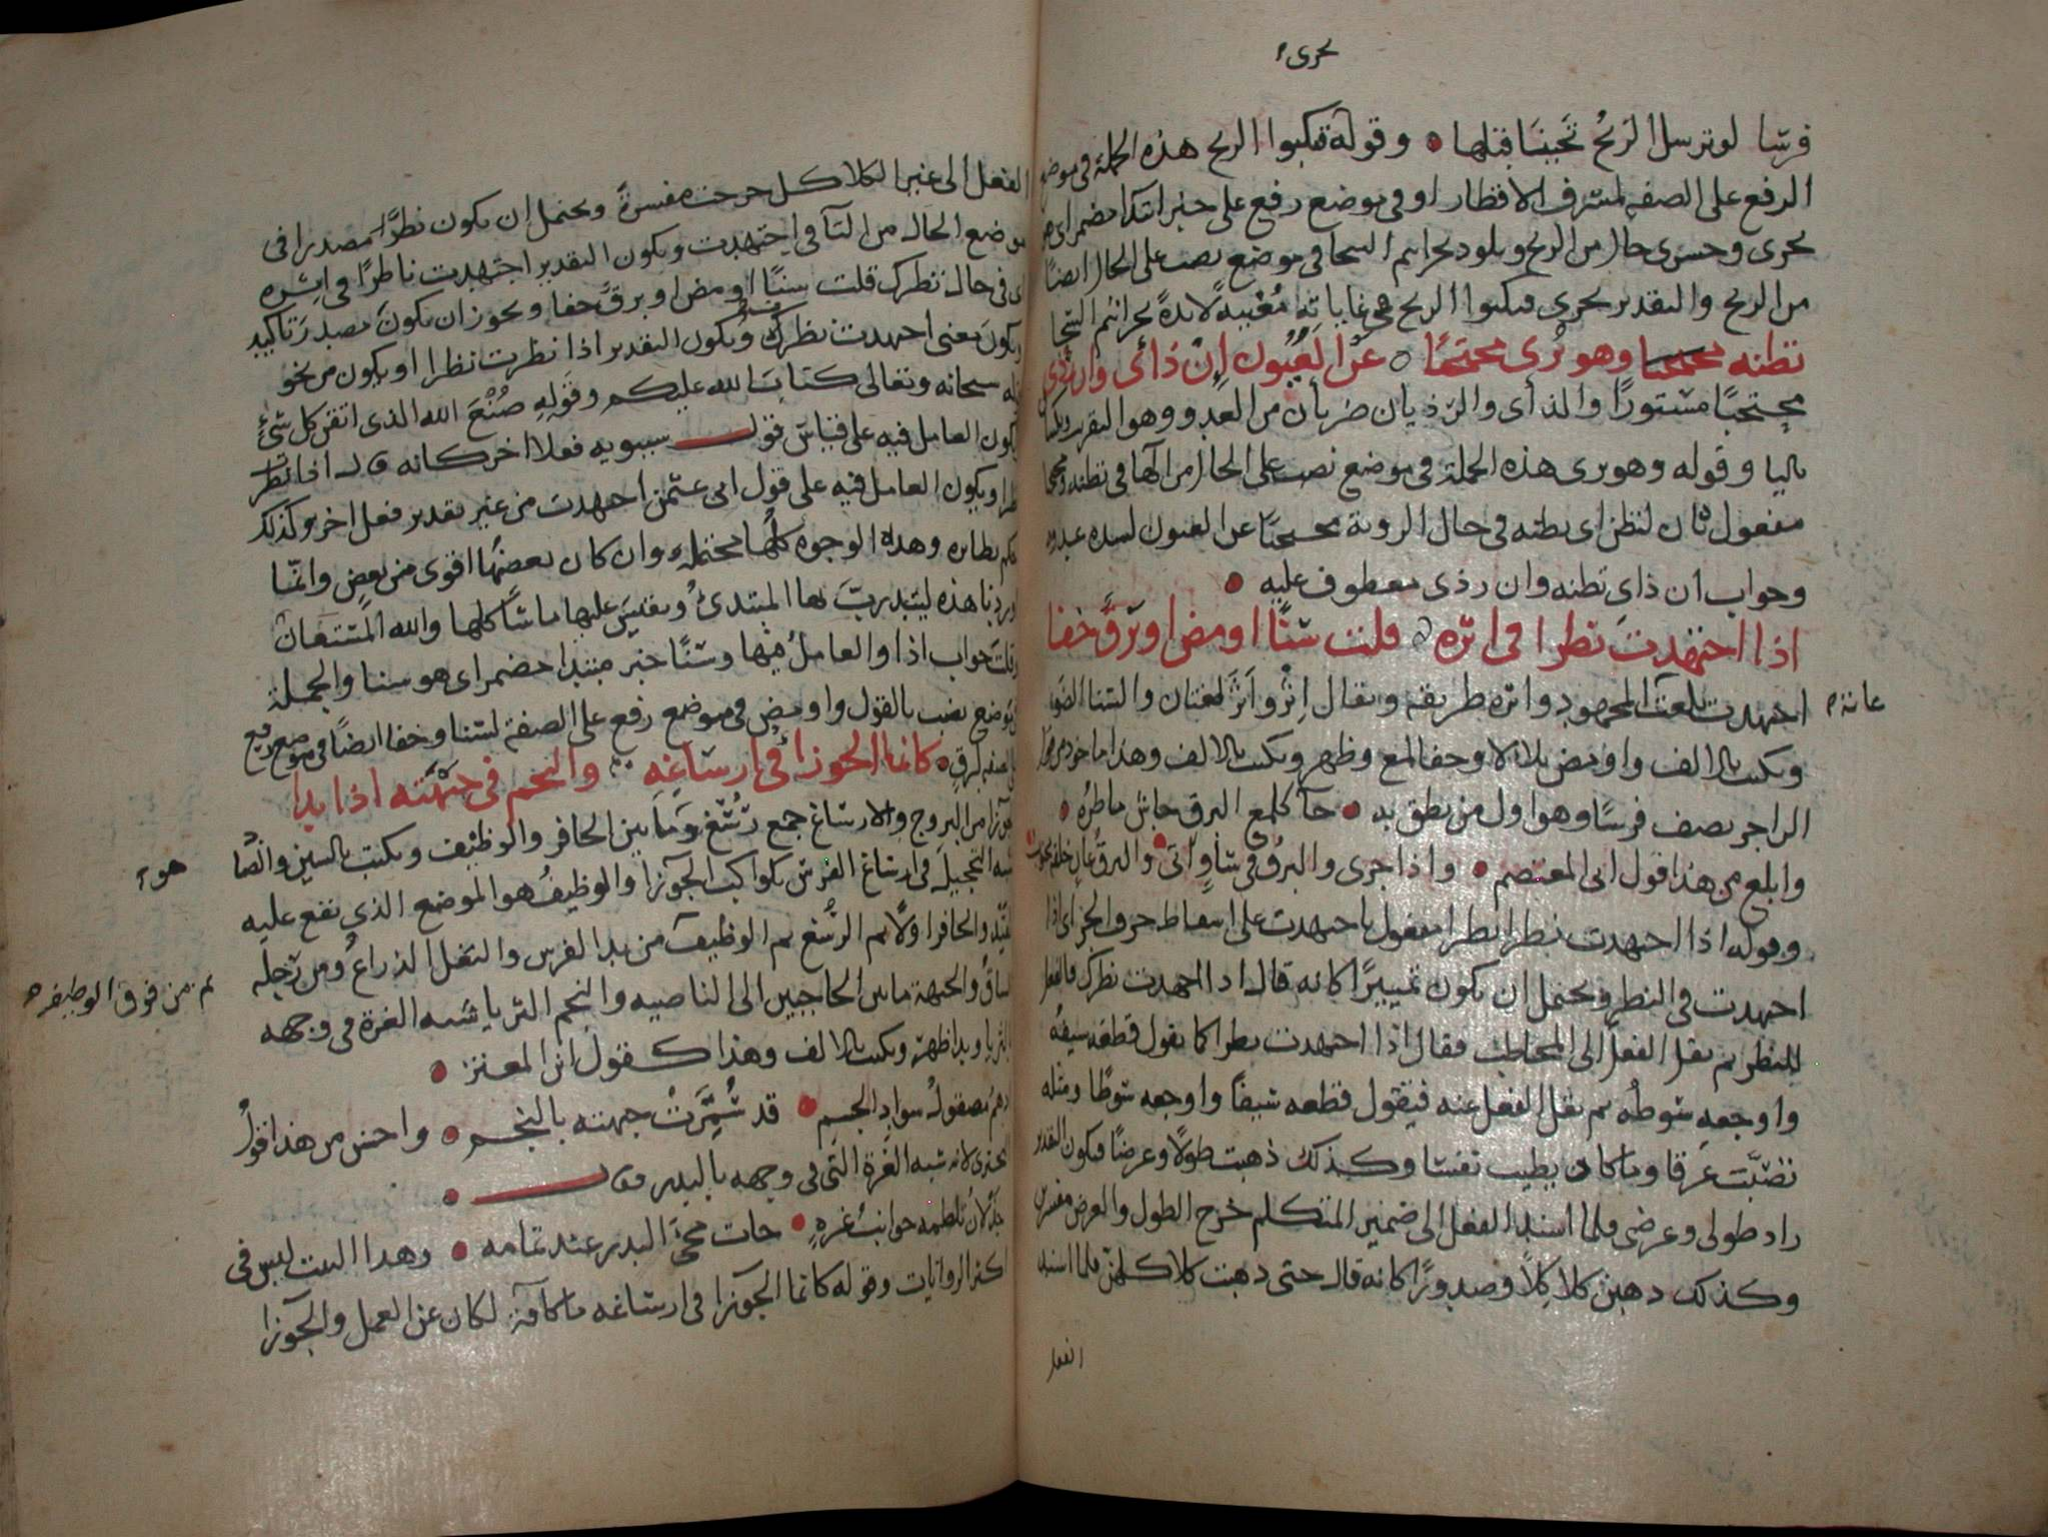 تجرى
فرسا لو ترسل الريح لجينا قبلها • وقوله فتكبوا الريح هذه الجملة فى موضع
الرفع على الصفة لمشرف الاقطار او فى موضع رفع على خبر ابتدا مضمر اى هو
يجرى وحسرى حال من الريح ويلوذ بجراثيم السحا فى موضع نصب على الحال ايضا
من الريح والتقدير يجرى فتكبوا الريح فى غاياته مغيبة لائذة بجراثيم السحا
تظنه وهو يرى محتجبا ○ عن العيون ان ذأى وان ردى
محتجبا مستورا والذأى والرذيان ضربان من العدو وهو التقريب
ياليا وقوله وهو يرى هذه الجملة فى موضع نصب على الحال من الها فى تظنه
مفعول ثان لتظن اى تظنه فى حال الروية محتجبا عن العيون لشدة عدوه
وجواب ان ذاى تظنه وان رذى معطوف عليه •
اذا اجتهدت نظرا فى اثره قلت سنا اومض او برق خفا
اجتهدت بلغت المجهود واثره طريقه ويقال اثر واثر لغتان والسنا الضوء
عانة
ويكتب بالالف واومض تلالا وخفا لمع وظهر ويكتب بالالف وهذا ماخوذ من قول
الراجز يصف فرسا وهو اول من نطق به • جا كلمع البرق جاش ماطره •
وابلغ من هذا قول ابن المعتصم • واذا جرى والبرق فى شأو اتى • والبرق عان خلفه
وقوله اذا اجتهدت نظرا نظرا مفعول باجتهدت على اسقاط حرف الجر اى اذا
اجتهدت فى النظر ويحتمل ان يكون تمييزا كانه قال اذ اجتهدت نظرك فالفعل
للنظر ثم نقل الفعل الى المخاطب فقال اذا اجتهدت نظرا كما يقول قطعه سيفه
واوجعه سوطه ثم نقل الفعل عنه فيقول قطعه سيفا واوجعه سوطا ومثله
تصببت عرقا وما كان يطيب نفسا وكذلك ذهبت طولا وعرضا فيكون التقدير
زاد طولى وعرضى فلما اسند الفعل الى ضمير المتكلم خرج الطول والعرض مفسرين
وكذلك ذهبن كلا كلا وصدورا كانه قال حتى ذهبت كلاكلهن فلما اسند
الفعل
الفعل الى غير الكلاكل خرجت مفسرة ويحتمل ان يكون نظرا مصدرا فى
موضع الحال من التا فى اجتهدت ويكون التقدير اجتهدت ناظرا فى اثره
اى فى حال نظرك قلت سنا اومض او برق خفا ويجوز ان يكون مصدر تاكيد
ويكون معنى اجتهدت نظرت ويكون التقدير اذا نظرت نظرا او يكون من نحو
قوله سبحانه وتعالى كتاب الله عليكم وقوله صنع الله الذى اتقن كل شئ
يكون العامل فيه على قياس قول سيبويه فعلا اخر كانه قال اذا نظر
نظرا ويكون العامل فيه على قول ابى عثمن اجتهدت من غير تقدير فعل اخر وكذلك
حكم نظايره وهذه الوجوه كلها محتملة وان كان بعضها اقوى من بعض وانما
اوردنا هذه ليتدرب بها المبتدئ ويقيس عليها ما شاكلها والله المستعان
وقلت جواب اذا والعامل فيها وسنا خبر مبتدا مضمر اى هو سنا والجملة
فى موضع نصب بالقول واومض فى موضع رفع على الصفة لسنا وخفا ايضا فى موضع رفع
على الصفة لبرق • كانما الجوزاء فى ارساغه والنجم فى جبهته اذا بدا
الجوزا من البروج والارساغ جمع رسغ وما بين الحافر والوظيف ويكتب بالسين والصاد
هو
شبه التحجيل فى ارساغ الفرس بكواكب الجوزا والوظيف هو الموضع الذى تقع عليه
القيد والحافر اولا ثم الرسغ ثم الوظيف من يد الفرس والتفل الذراع ومن رجله
ثم من فوق الوظيف
الساق والجبهة ما بين الحاجبين الى الناصية والنجم الثريا شبه الغرة فى وجهه
بالثريا وبدا ظهر ويكتب بالالف وهذا كقول ابن المعتز •
ادهم مصقول سواد الجسم • قد سمرت جبهته بالنجم • واحسن من هذا قول
البحترى لانه شبه الغرة التى فى وجهه بالبدر وقال •
جذلان تلطمه جوانب غرة • جات مجئ البدر عند تمامه • وهذا البيت ليس فى
اكثر الروايات وقوله كانما الجوزا فى ارساغه ما كافة لكان عن العمل والجوزا